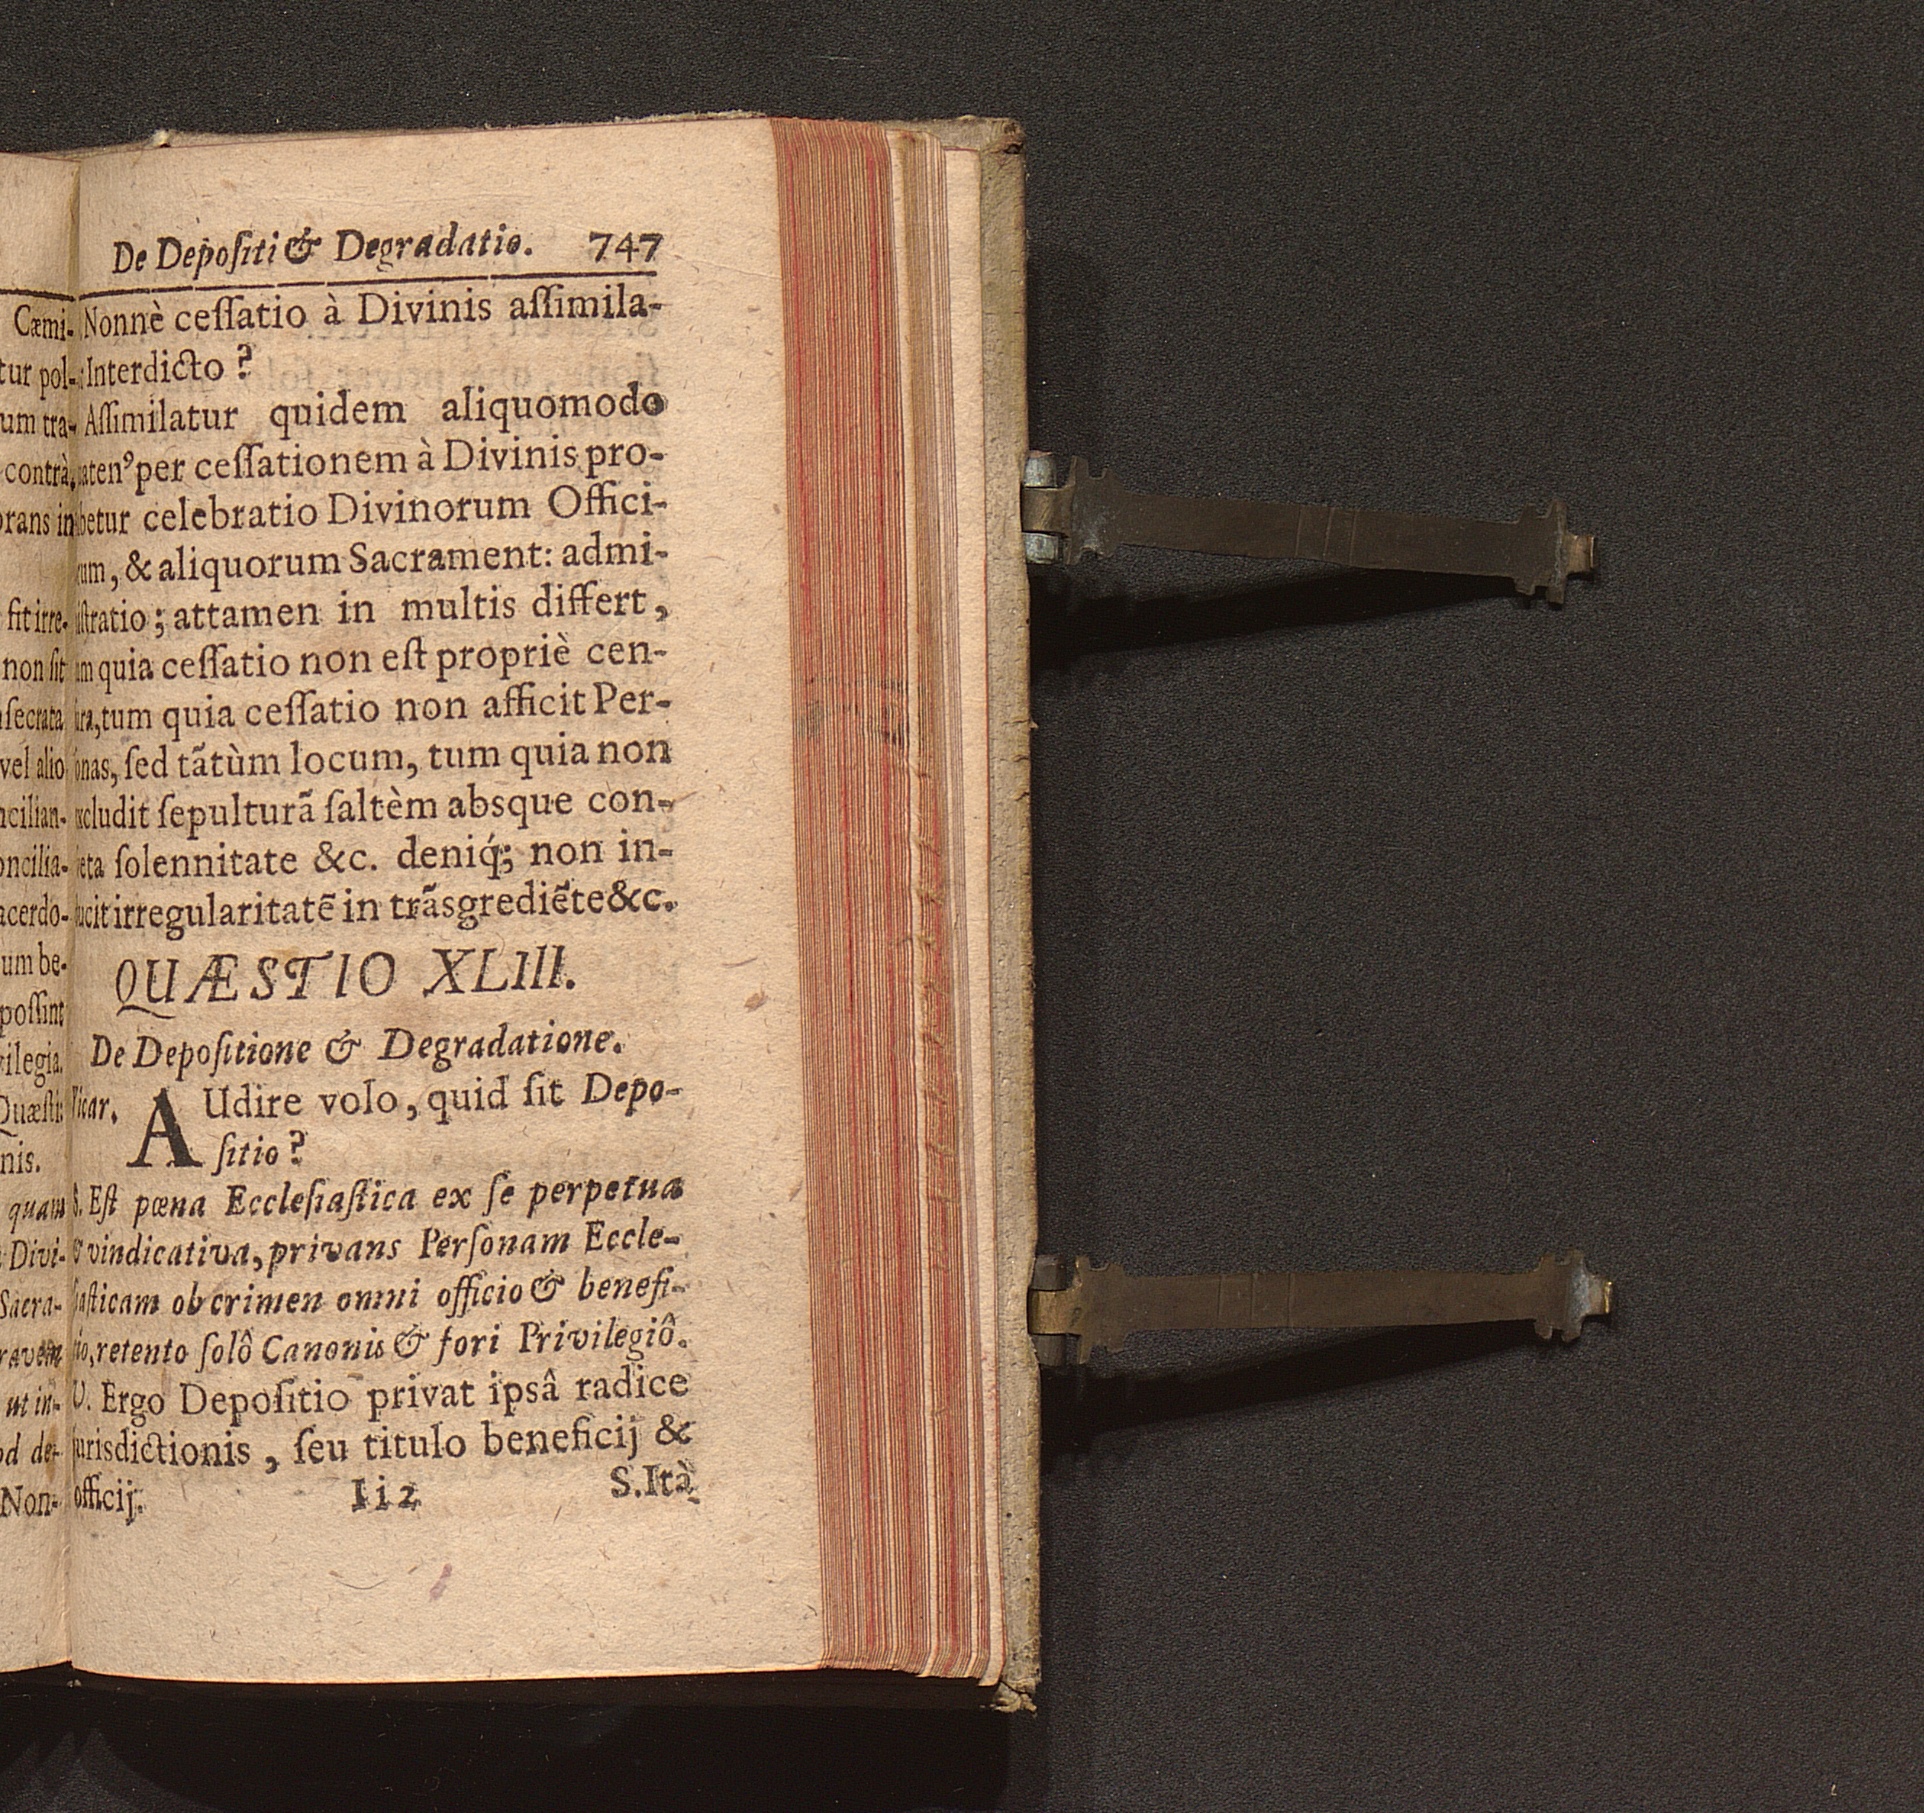 De Depoſiti & Degradatio. 747
Nonnè ceſſatio à Divinis aſſimila-
Interdicto?
Aſſimilatur quidem aliquomodo
aten⁹ per ceſſationem à Divinis pro-
betur celebratio Divinorum Offici-
um, & aliquorum Sacrament: admi-
ſtratio; attamen in multis differt,
m quia ceſſatio non eſt propriè cen-
ra, tum quia ceſſatio non afficit Per-
onas, ſed tãtùm locum, tum quia non
cludit ſepulturã ſaltèm absque con-
eta ſolennitate &c. deniq́; non in-
ucit irregularitatẽ in trãsgrediẽte &c.
QUÆSTIO XLIII.
De Depoſitione & Degradatione.
Vicar. AUdire volo, quid ſit Depo-
ſitio?
S. Eſt pœna Eccleſiaſtica ex ſe perpetua
& vindicativa, privans Perſonam Eccle-
ſiaſticam ob crimen omni officio & benefi-
cio, retento ſolô Canonis & fori Privilegiô.
V. Ergo Depoſitio privat ipsâ radice
jurisdictionis, ſeu titulo beneficij &
officij.
Ii2 S.Ità
Cæmi-
tur pol-
um tra-
contrà,
orans in
fit irre-
non ſit
ſecrata
vel alio
ncilian-
oncilia-
acerdo-
um be-
poſſint
ilegia.
Quæſti:
nis.
quam
Divi-
Sacra-
ravem
ut in-
od de-
Non-